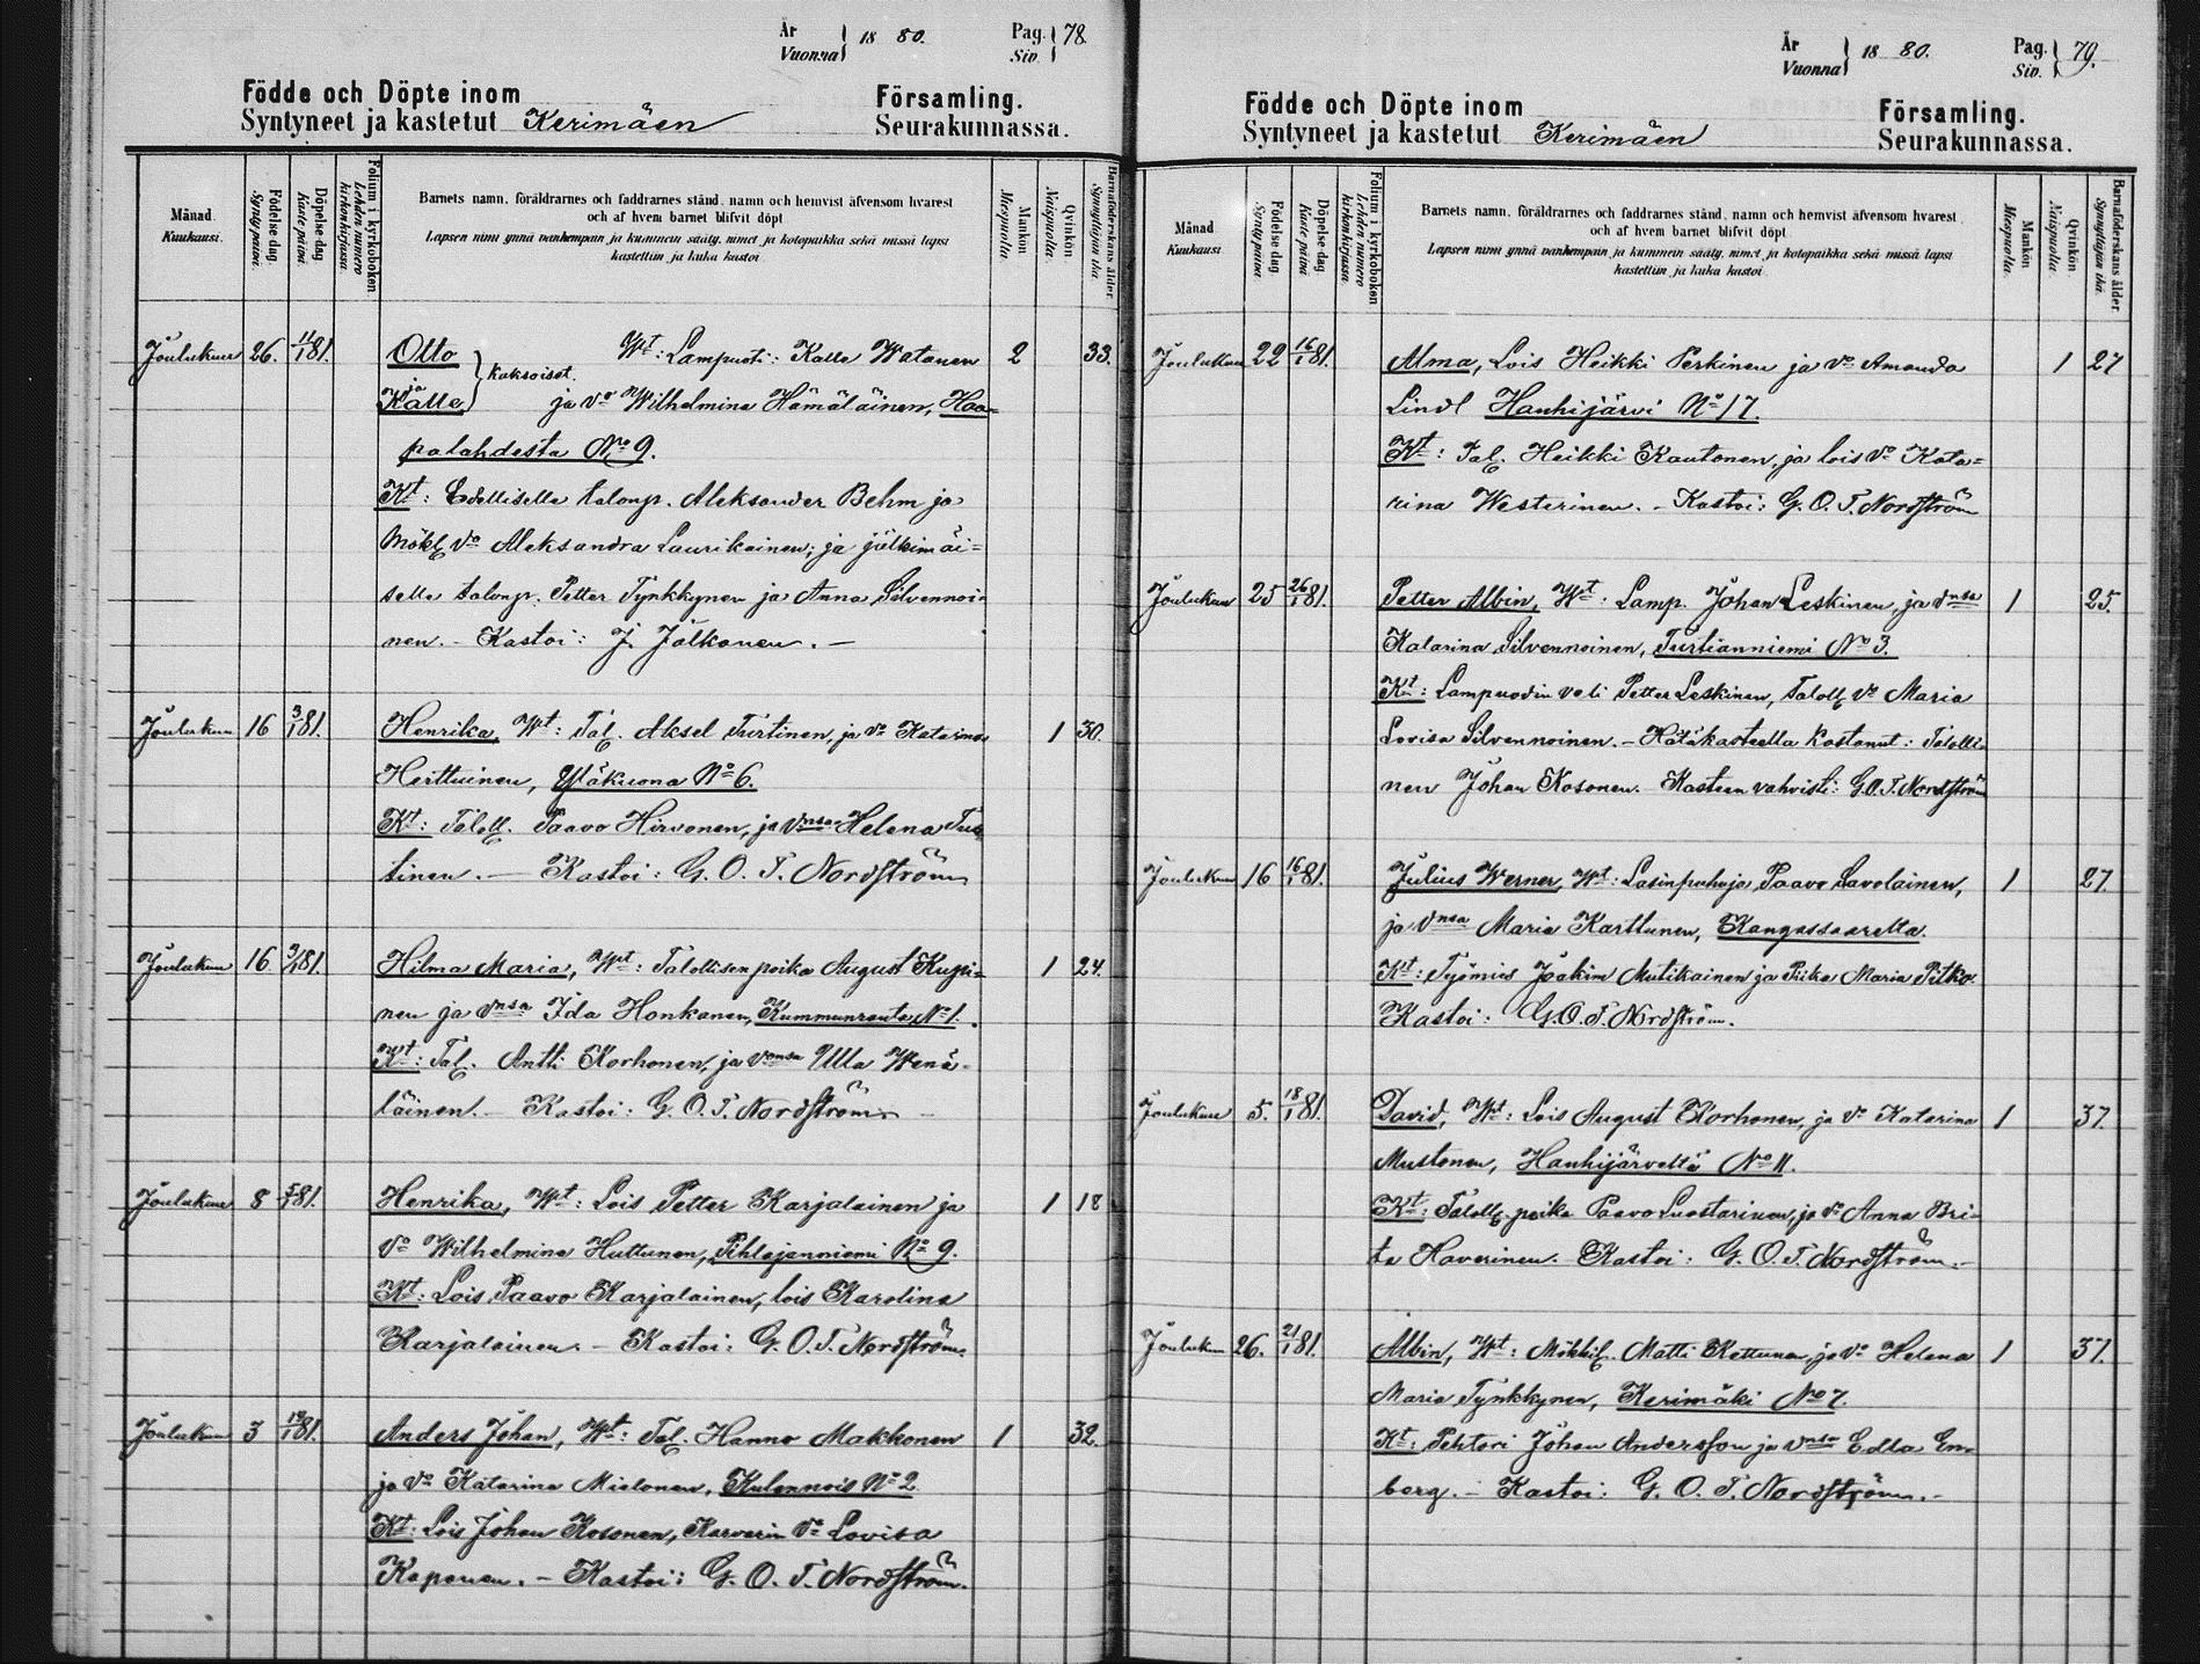 År
Vuonna } 18 80.
Pag.
Siv. } 78.
Födde och Döpte inom
Församling.
Syntyneet ja kastetut Kerimäen Seurakunnassa.
Månad
Kuukausi.
Födelse dag
Synty päivä.
Döpelse dag
Kaste päivä.
Folium i kyrkoboken
Lehden numero kirkonkirjassa
Barnets namn, föräldrarnes och faddrarnes stånd, namn och hemvist äfvensom hvarest
och af hvem barnet blifvit döpt
Lapsen nimi ynnä vanhempain ja kummein sääty, nimet ja kotopaikka sekä missä lapsi
kastettiin ja kuka kastoi
Mankön
Miespuolta
Qvinkön
Naispuolta.
Barnaföderskans ålder
Synnyttäjän ikä.
Joulukuu 26. 11/1 81. Otto Wt: Lampuoti: Kalle Watanen 2 33.
ja } kaksoiset.
Kalle ja vo Wilhelmina Hämäläinen, Haa=
palahdesta No 9.
Kt: Edelliselle talonp. Aleksander Behm ja
Mökl vo Aleksandra Laurikainen; ja jälkimäi=
selle talonp. Petter Tynkkynen ja Anna Silvennoi=
nen. – Kastoi: J. Jalkanen. –
Joulukuu 16 3/1 81. Henrika, Wt: Tal. Aksel Turtinen, ja vo Katarina 1 30.
Herttuinen, Yläkuona No 6.
Kt: Taloll. Paavo Hirvonen, ja vnsa Helena Tur
tinen. – Kastoi: G. O. T. Nordström
Joulukuu 16 3/1 81. Hilma Maria, Wt: Talollisen poika August Kupi= 1 24.
nen ja vnsa Ida Honkanen, Kummunranta No 1.
Kt: Tal. Antti Korhonen, ja vmsa Ulla Wenä=
läinen. – Kastoi: G. O. T. Nordström –
Joulukuu 8 5/1 81. Henrika, Wt: Lois Petter Karjalainen ja 1 18
vo Wilhelmina Huttunen, Pihlajanniemi No 9.
Kt: Lois Paavo Karjalainen, lois Karolina
Karjalainen. – Kastoi: G. O. T. Nordström.
Joulukuu 3 81. Anders Johan, Wt: Tal. Hanno Makkonen 1 32.
ja vo Katarina Mielonen, Kulennois No 2
Kt: Lois Johan Kosonen, Karvarin vo Lovisa
Kaponen. – Kastoi: G. O. T. Nordström.
År
Vuonna } 18 80.
Pag.
Siv. } 79.
Födde och Döpte inom
Församling.
Syntyneet ja kastetut Kerimäen Seurakunnassa.
Månad
Kuukausi
Födelse dag
Synty päivä.
Döpelse dag
Kaste päivä.
Folium i kyrkoboken
Lehden numero kirkonkirjassa.
Barnets namn, föräldrarnes och faddrarnes stånd, namn och hemvist äfvensom hvarest
och af hvem barnet blifvit döpt
Lapsen nimi ynnä vanhempain ja kummein sääty, nimet ja kotopaikka sekä missä lapsi
kastettiin ja kuka kastoi
Mankön
Miespuolta.
Qvinkön
Naispuolta.
Barnaföderskans ålder
Synnyttäjän ikä.
Joulukuu 22 16/1 81. Alma, Lois Heikki Perkinen ja vo Amanda 1 27
Lindl Hanhijärvi No 17.
Kt: Tal. Heikki Kautonen, ja lois vo Kata=
rina Westerinen. – Kastoi: G. O. T. Nordström
Joulukuu 25 26/1 81. Petter Albin, Wt. Lamp. Johan Leskinen, ja vnsa 1 25.
Katarina Silvennoinen, Turtianniemi No 3.
Kt: Lampuodin veli Petter Leskinen, Taloll vo Maria
Lovisa Silvennoinen. – Hätäkasteella Kastanut: Talolli
nen Johan Kosonen. Kasteen vahvisti: G. O. T. Nordström
Joulukuu 16 16/1 81. Julius Werner, Wt: Lasinpuhaja Paavo Savolainen, 1 27.
ja vnsa Maria Karttunen, Kangassaarelta.
Kt: Työmies Joakim Mutikainen ja Piika Maria Pitko.
Kastoi: G. O. T. Nordström.
Joulukuu 5. 18/1 81. David, Wt: Lois August Korhonen, ja vo Katarina 1 37.
Mustonen, Hanhijärveltä No 11.
Kt: Taloll. poika Paavo Luostarinen, ja vo Anna Bri=
ta Haverinen. Kastoi: G. O. T. Nordström. –
Jouluku 26. 21/1 81. Albin, Wt: Mökkil. Matti Kettunen, ja vo Helena 1 37.
Maria Tynkkynen, Kerimäki No 7.
Kt: Pehtori Johan Andersson ja vnsa Edla En=
berg. – Kastoi: G. O. T. Nordström. –